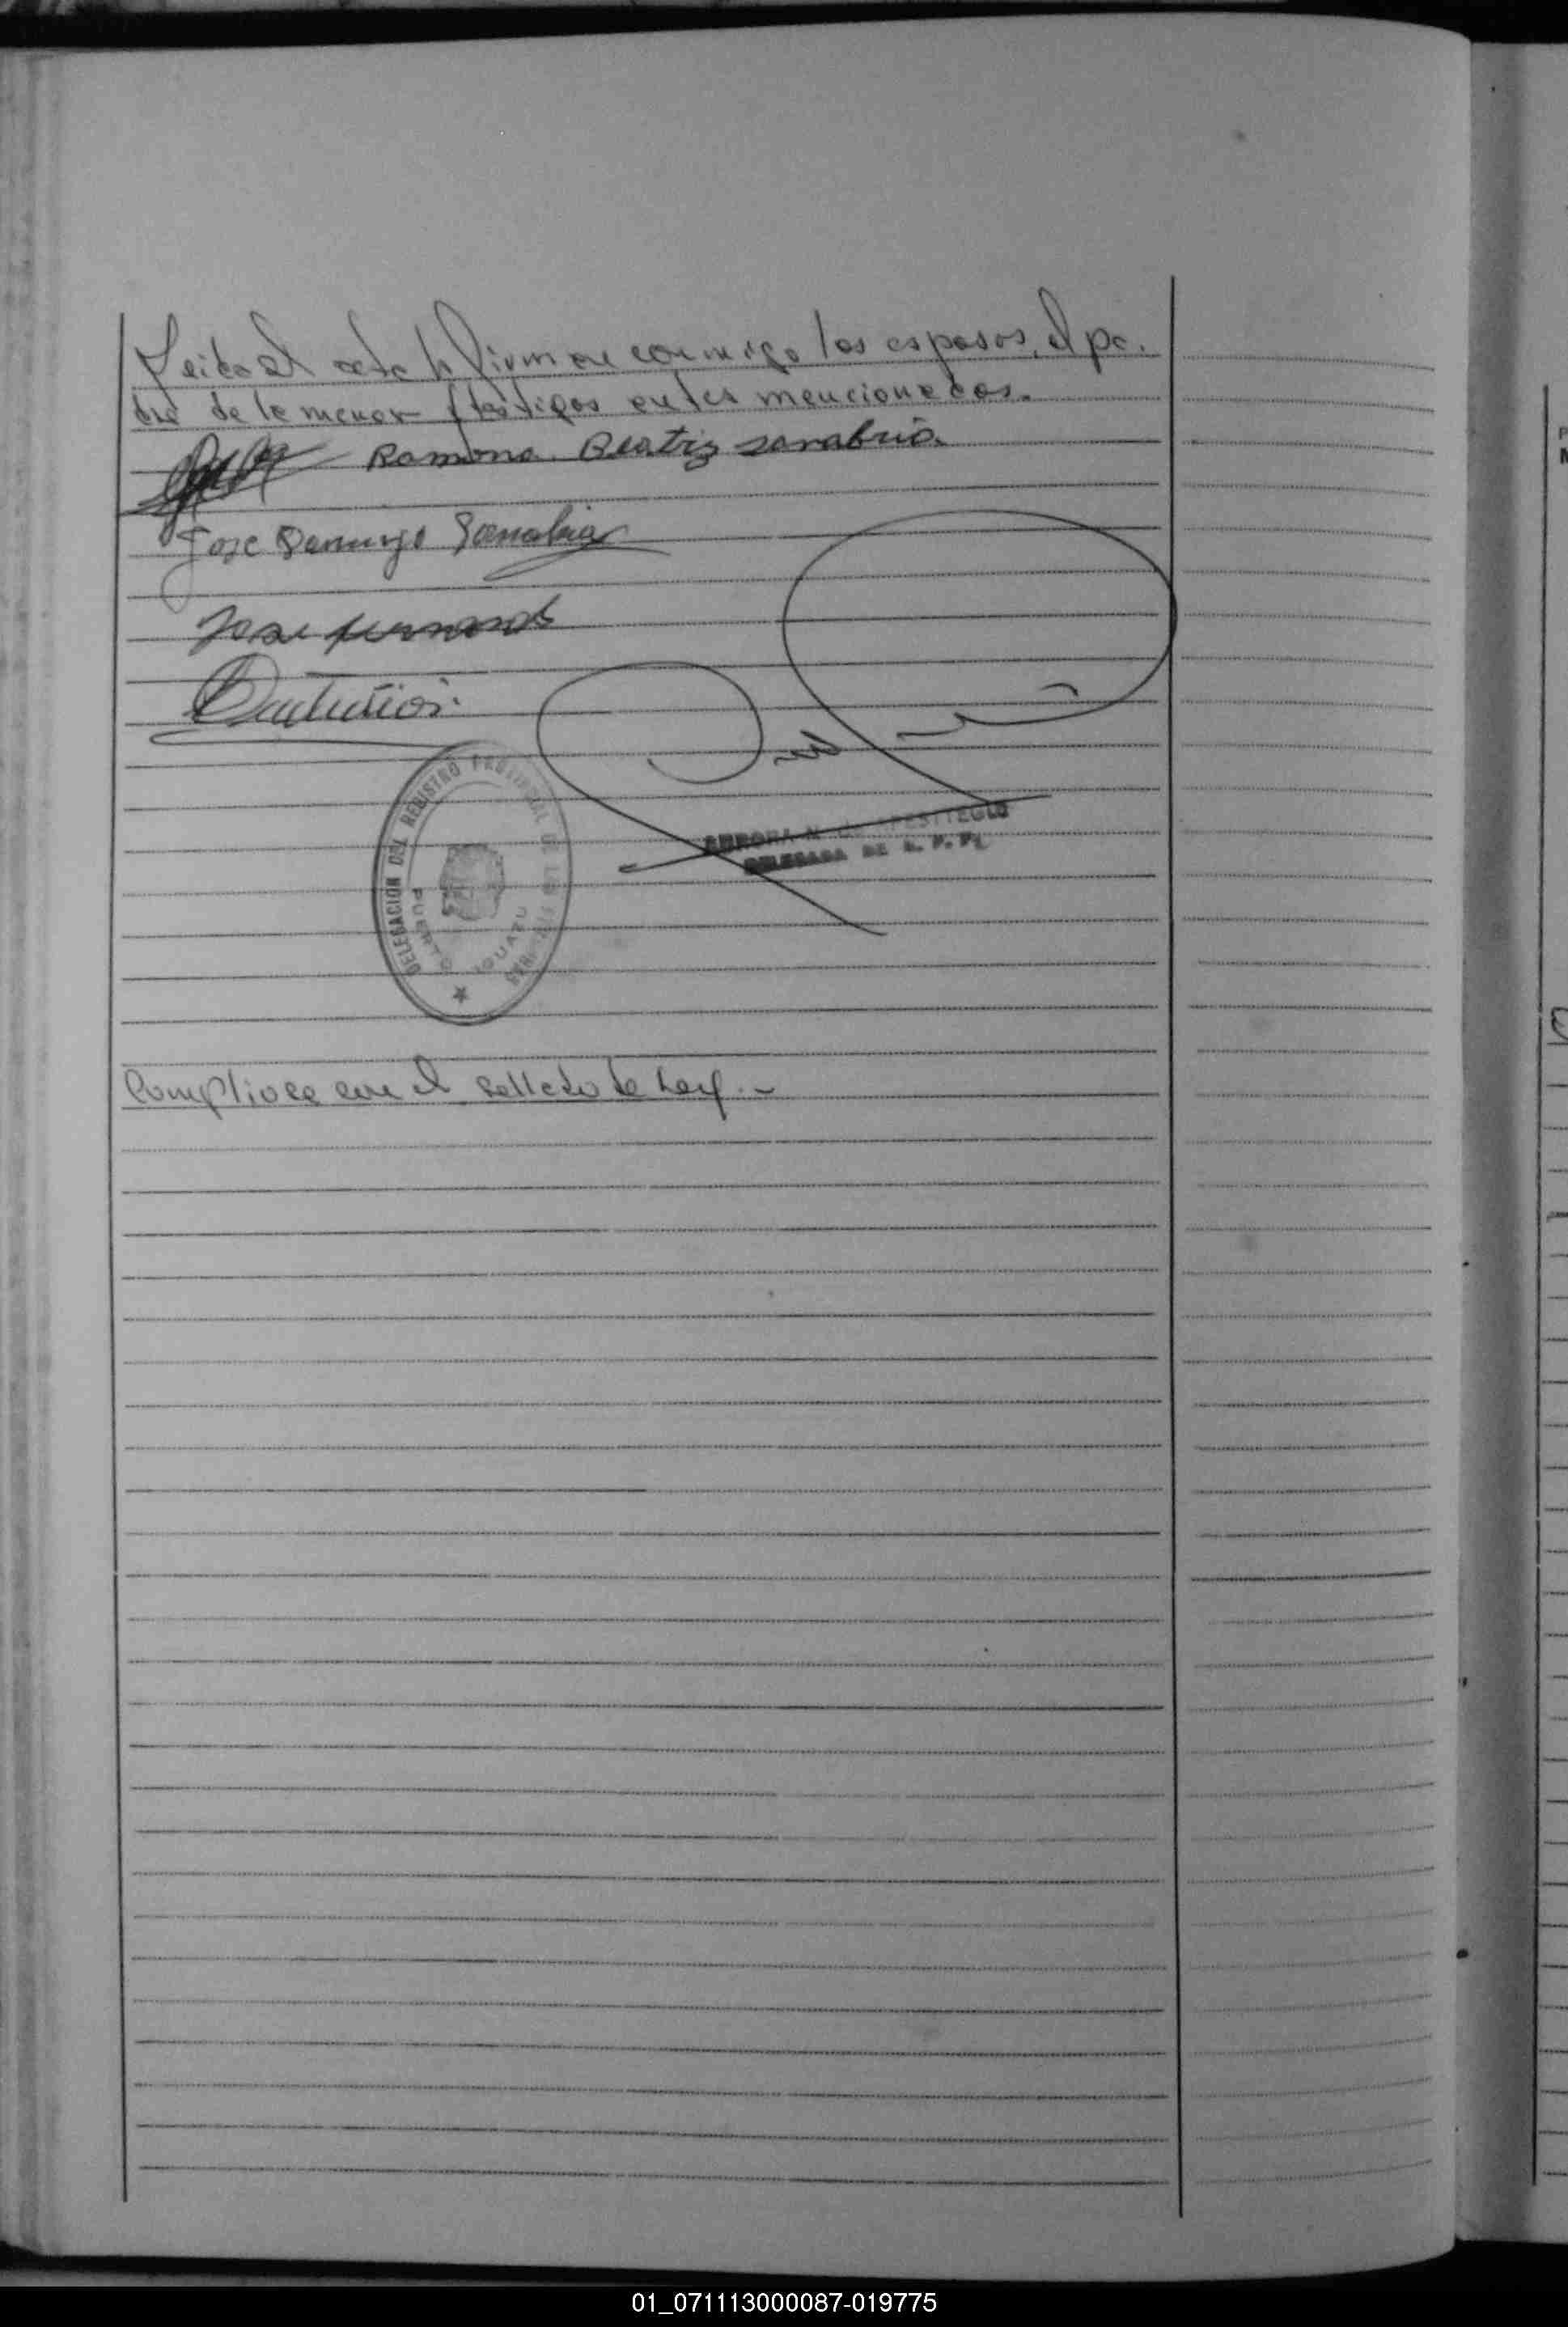 Leida el acta la firman conmigo los esposos, el pa-
dre de la menor y testigos antes mencionados.
Ramona Beatriz Sanabria
Jose Domingo Sanabria
Jose
DELEGACION DEL REGISTRO PROVINCIAL DE LAS PERSONAS
PUERTO IGUAZU
DELEGADA DE R. P. P.
Complióse con el sellado de Ley.-
01_071113000087-019775